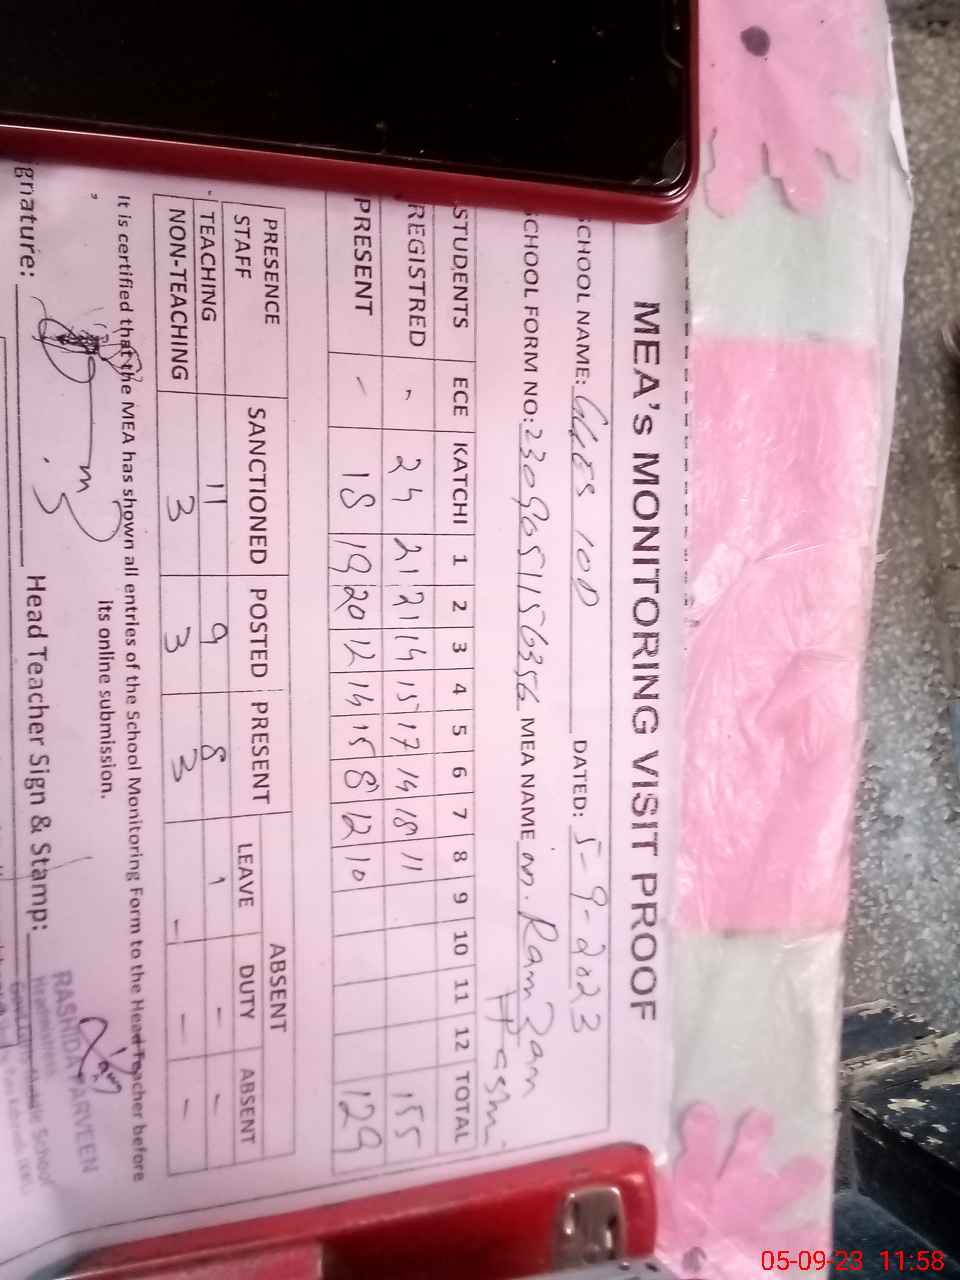 MEA's MONITORING VISIT PROOF
SCHOOL NAME: DATED: 5-9-2023
SCHOOL FORM NO: MEA NAME m. Ramzan
STUDENTS ECE KATCHI 1 2 3 4 5 6 7 8 9 10 11 12 TOTAL
REGISTRED - 24 21 21 14 15 17 14 18 11 155
PRESENT - 18 19 20 12 14 15 8 12 10 129
PRESENCE SANCTIONED POSTED PRESENT ABSENT
STAFF LEAVE DUTY ABSENT
TEACHING 11 9 8 1 - -
NON-TEACHING 3 3 3 - - -
It is certified that the MEA has shown all entries of the School Monitoring Form to the Head Teacher before
its online submission.
ignature: Head Teacher Sign & Stamp:
RASHIDA PARVEEN
Headmistress
School
05-09-23 11:58